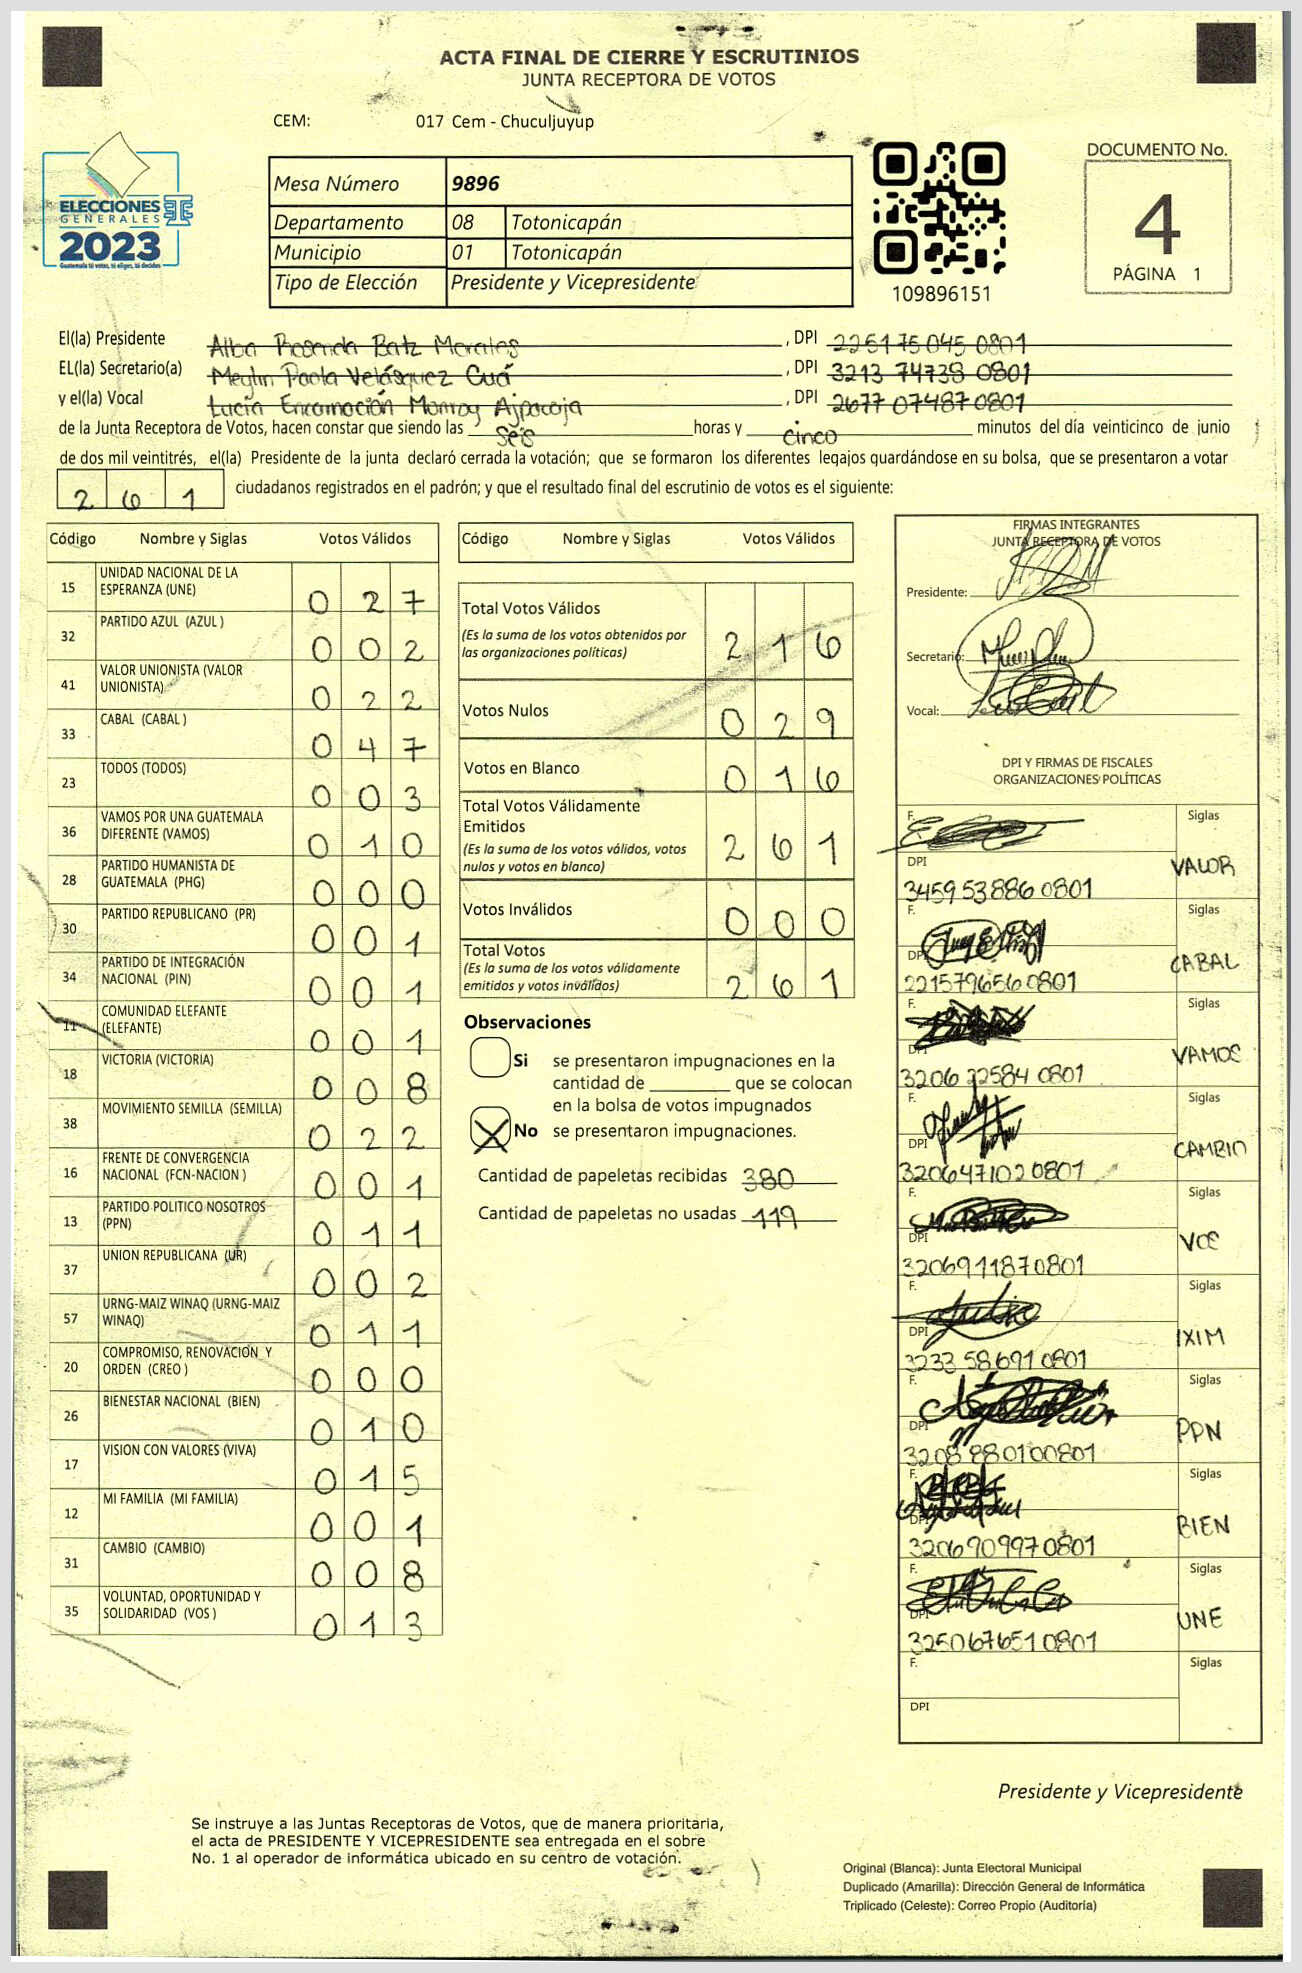 ACTA FINAL DE CIERRE Y ESCRUTINIOS
JUNTA RECEPTORA DE VOTOS
CEM: 017 Cem - Chuculjuyup
ELECCIONES
GENERALES
2023
Guatemala tú votas, tú eliges, tú decides
Mesa Número 9896
Departamento 08 Totonicapán
Municipio 01 Totonicapán
Tipo de Elección Presidente y Vicepresidente
109896151
DOCUMENTO No.
4
PÁGINA 1
El(la) Presidente Alba Rosenda Batz Morales, DPI 2251 75045 0801
EL(la) Secretario(a) Meylin Paola Velásquez Cuá, DPI 3213 74738 0801
y el(la) Vocal Lucía Encarnación Monroy Ajpacajá, DPI 2677 07487 0801
de la Junta Receptora de Votos, hacen constar que siendo las seis horas y cinco minutos del día veinticinco de junio
de dos mil veintitrés, el(la) Presidente de la junta declaró cerrada la votación; que se formaron los diferentes legajos guardándose en su bolsa, que se presentaron a votar
261 ciudadanos registrados en el padrón; y que el resultado final del escrutinio de votos es el siguiente:
Código Nombre y Siglas Votos Válidos
15 UNIDAD NACIONAL DE LA
ESPERANZA (UNE) 027
32 PARTIDO AZUL (AZUL ) 002
41 VALOR UNIONISTA (VALOR
UNIONISTA) 022
33 CABAL (CABAL ) 047
23 TODOS (TODOS) 003
36 VAMOS POR UNA GUATEMALA
DIFERENTE (VAMOS) 010
28 PARTIDO HUMANISTA DE
GUATEMALA (PHG) 000
30 PARTIDO REPUBLICANO (PR) 001
34 PARTIDO DE INTEGRACIÓN
NACIONAL (PIN) 001
11 COMUNIDAD ELEFANTE
(ELEFANTE) 001
18 VICTORIA (VICTORIA) 008
38 MOVIMIENTO SEMILLA (SEMILLA) 022
16 FRENTE DE CONVERGENCIA
NACIONAL (FCN-NACION ) 001
13 PARTIDO POLITICO NOSOTROS
(PPN) 011
37 UNION REPUBLICANA (UR) 002
57 URNG-MAIZ WINAQ (URNG-MAIZ
WINAQ) 011
20 COMPROMISO, RENOVACIÓN Y
ORDEN (CREO ) 000
26 BIENESTAR NACIONAL (BIEN) 010
17 VISION CON VALORES (VIVA) 015
12 MI FAMILIA (MI FAMILIA) 001
31 CAMBIO (CAMBIO) 008
35 VOLUNTAD, OPORTUNIDAD Y
SOLIDARIDAD (VOS ) 013
Código Nombre y Siglas Votos Válidos
Total Votos Válidos
(Es la suma de los votos obtenidos por
las organizaciones políticas) 216
Votos Nulos 029
Votos en Blanco 016
Total Votos Válidamente
Emitidos
(Es la suma de los votos válidos, votos
nulos y votos en blanco) 261
Votos Inválidos 000
Total Votos
(Es la suma de los votos válidamente
emitidos y votos inválidos) 261
Observaciones
Si se presentaron impugnaciones en la
cantidad de ________ que se colocan
en la bolsa de votos impugnados
No se presentaron impugnaciones.
Cantidad de papeletas recibidas 380
Cantidad de papeletas no usadas 119
FIRMAS INTEGRANTES
JUNTA RECEPTORA DE VOTOS
Presidente:
Secretario:
Vocal:
DPI Y FIRMAS DE FISCALES
ORGANIZACIONES POLÍTICAS
F. Siglas
DPI VALOR
3459 53886 0801
F. Siglas
DPI CABAL
2215796560801
F. Siglas
DPI VAMOS
3206 22584 0801
F. Siglas
DPI CAMBIO
3206471020801
F. Siglas
DPI VOS
3206911870801
F. Siglas
DPI IXIM
3233 58691 0801
F. Siglas
DPI PPN
3208 880100801
F. Siglas
DPI BIEN
3206909970801
F. Siglas
DPI UNE
3250676510801
F. Siglas
DPI
Presidente y Vicepresidente
Se instruye a las Juntas Receptoras de Votos, que de manera prioritaria,
el acta de PRESIDENTE Y VICEPRESIDENTE sea entregada en el sobre
No. 1 al operador de informática ubicado en su centro de votación.
Original (Blanca): Junta Electoral Municipal
Duplicado (Amarilla): Dirección General de Informática
Triplicado (Celeste): Correo Propio (Auditoría)